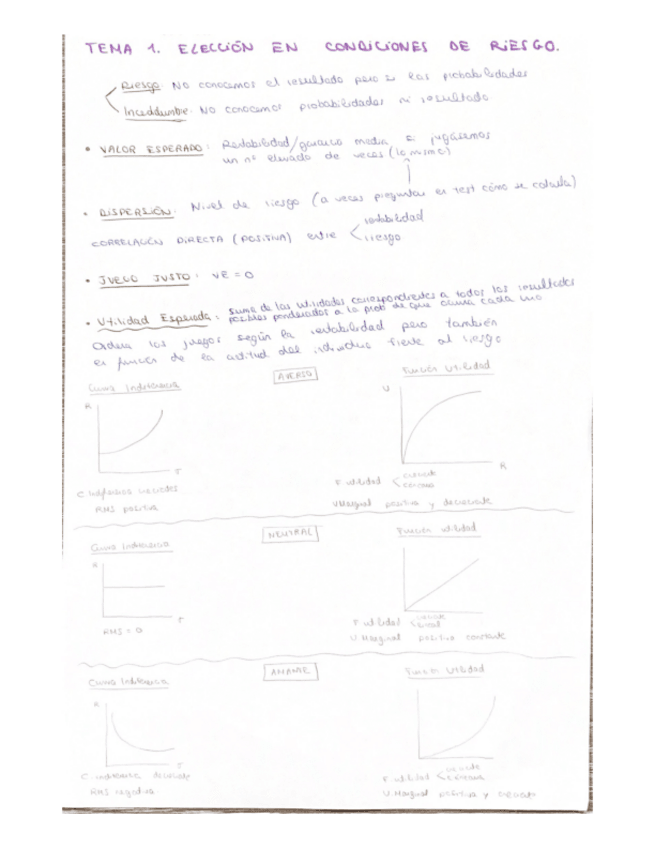 TEMA 1. ELECCIÓN EN CONDICIONES DE RIESGO.
Riesgo: NO conocemos el resultado pero si las probabilidades
Incertidumbre: NO conocemos probabilidades ni resultado.
• VALOR ESPERADO: Rentabilidad/ganancia media si jugásemos
un nº elevado de veces (lo mismo)
• DISPERSIÓN: Nivel de riesgo (a veces preguntan en test cómo se calcula)
CORRELACIÓN DIRECTA (POSITIVA) entre < rentabilidad
riesgo
• JUEGO JUSTO: VE = 0
• Utilidad Esperada: suma de las utilidades correspondientes a todos los resultados
posibles ponderados a la prob de que ocurra cada uno
Ordena los juegos según la rentabilidad pero también
en función de la actitud del individuo frente al riesgo
Curva Indiferencia
AVERSO
Función Utilidad
R
U
R
F. utilidad < creciente
cóncava
RMS positiva
UMarginal positiva y decreciente
Curva Indiferencia
NEUTRAL
Función utilidad
R
RMS = 0
F. utilidad < creciente
U. Marginal positiva constante
Curva Indiferencia
AMANTE
Función Utilidad
R
C. indiferencia
RMS negativa
F. utilidad < creciente
U. Marginal positiva y creciente